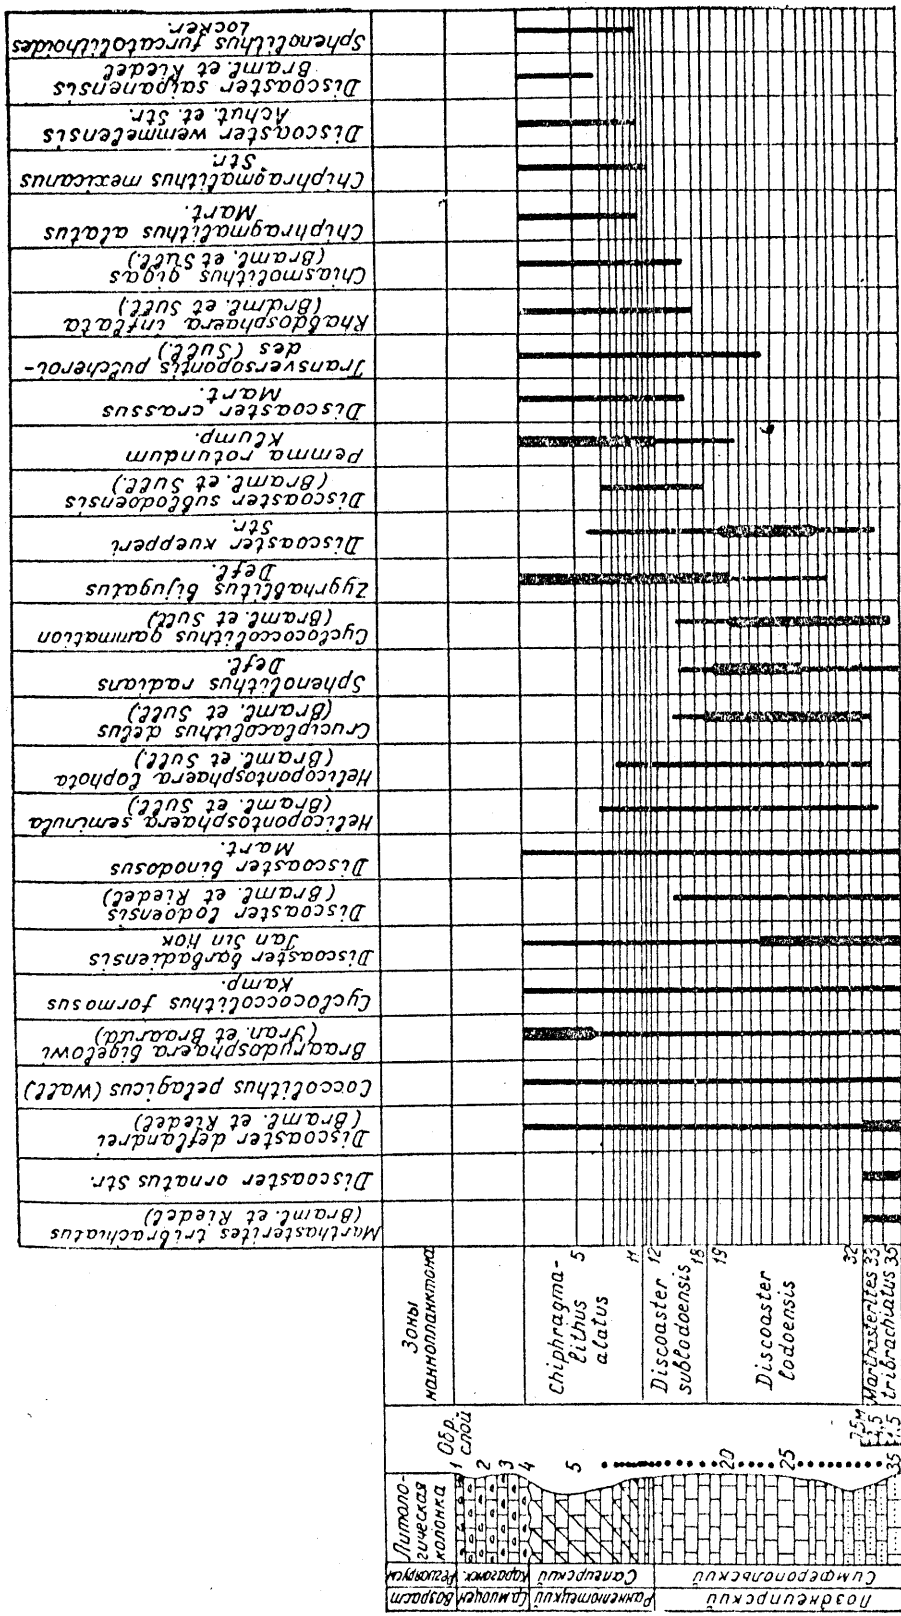 Sphenolithus furcatolithoides
Locker.
Discoaster saipanensis
Braml. et Riedel
Discoaster wemmelensis
Achut. et. Str.
Chiphragmalithus mexicanus
Str.
Chiphragmalithus alatus
Mart.
Chiasmolithus gigas
(Braml. et Sull.)
Rhabdosphaera inflata
(Braml. et Sull)
Transversopontis pulcheroi-
des (Sull.)
Discoaster crassus
Mart.
Pemma rotundum
Klump.
Discoaster sublodoensis
(Braml. et Sull.)
Discoaster kuepperi
Str.
Zygrhablitus bijugatus
Defl.
Cyclococcolithus gammation
(Braml. et Sull)
Sphenolithus radians
Defl.
Cruciplacolithus delus
(Braml. et Sull)
Helicopontosphaera lophota
(Braml. et Sull.)
Helicopontosphaera seminula
(Braml. et Sull.)
Discoaster binodosus
Mart.
Discoaster lodoensis
(Braml. et Riedel)
Discoaster barbadiensis
Jan Sin Hok
Cyclococcolithus formosus
Kamp.
Braarudosphaera bigelowi
(Gran. et Braarud)
Coccolithus pelagicus (Wall)
Discoaster deflandrei
(Braml. et Riedel)
Discoaster ornatus Str.
Marthasterites tribrachiatus
(Braml. et Riedel)
Зоны
наннопланктона
Chiphragma-
lithus
alatus
5
11
Discoaster
sublodoensis
12
18
Discoaster
lodoensis
19
32
Marthasterites 33
tribrachiatus 35
Обр.
слой
1
2
3
4
5
20
25
35
7,5м
1,5
Литоло-
гическая
колонка
Регионярусы
Караганск.
Симферопольский
Возраст
Ср. миоцен
Раннелютецкий